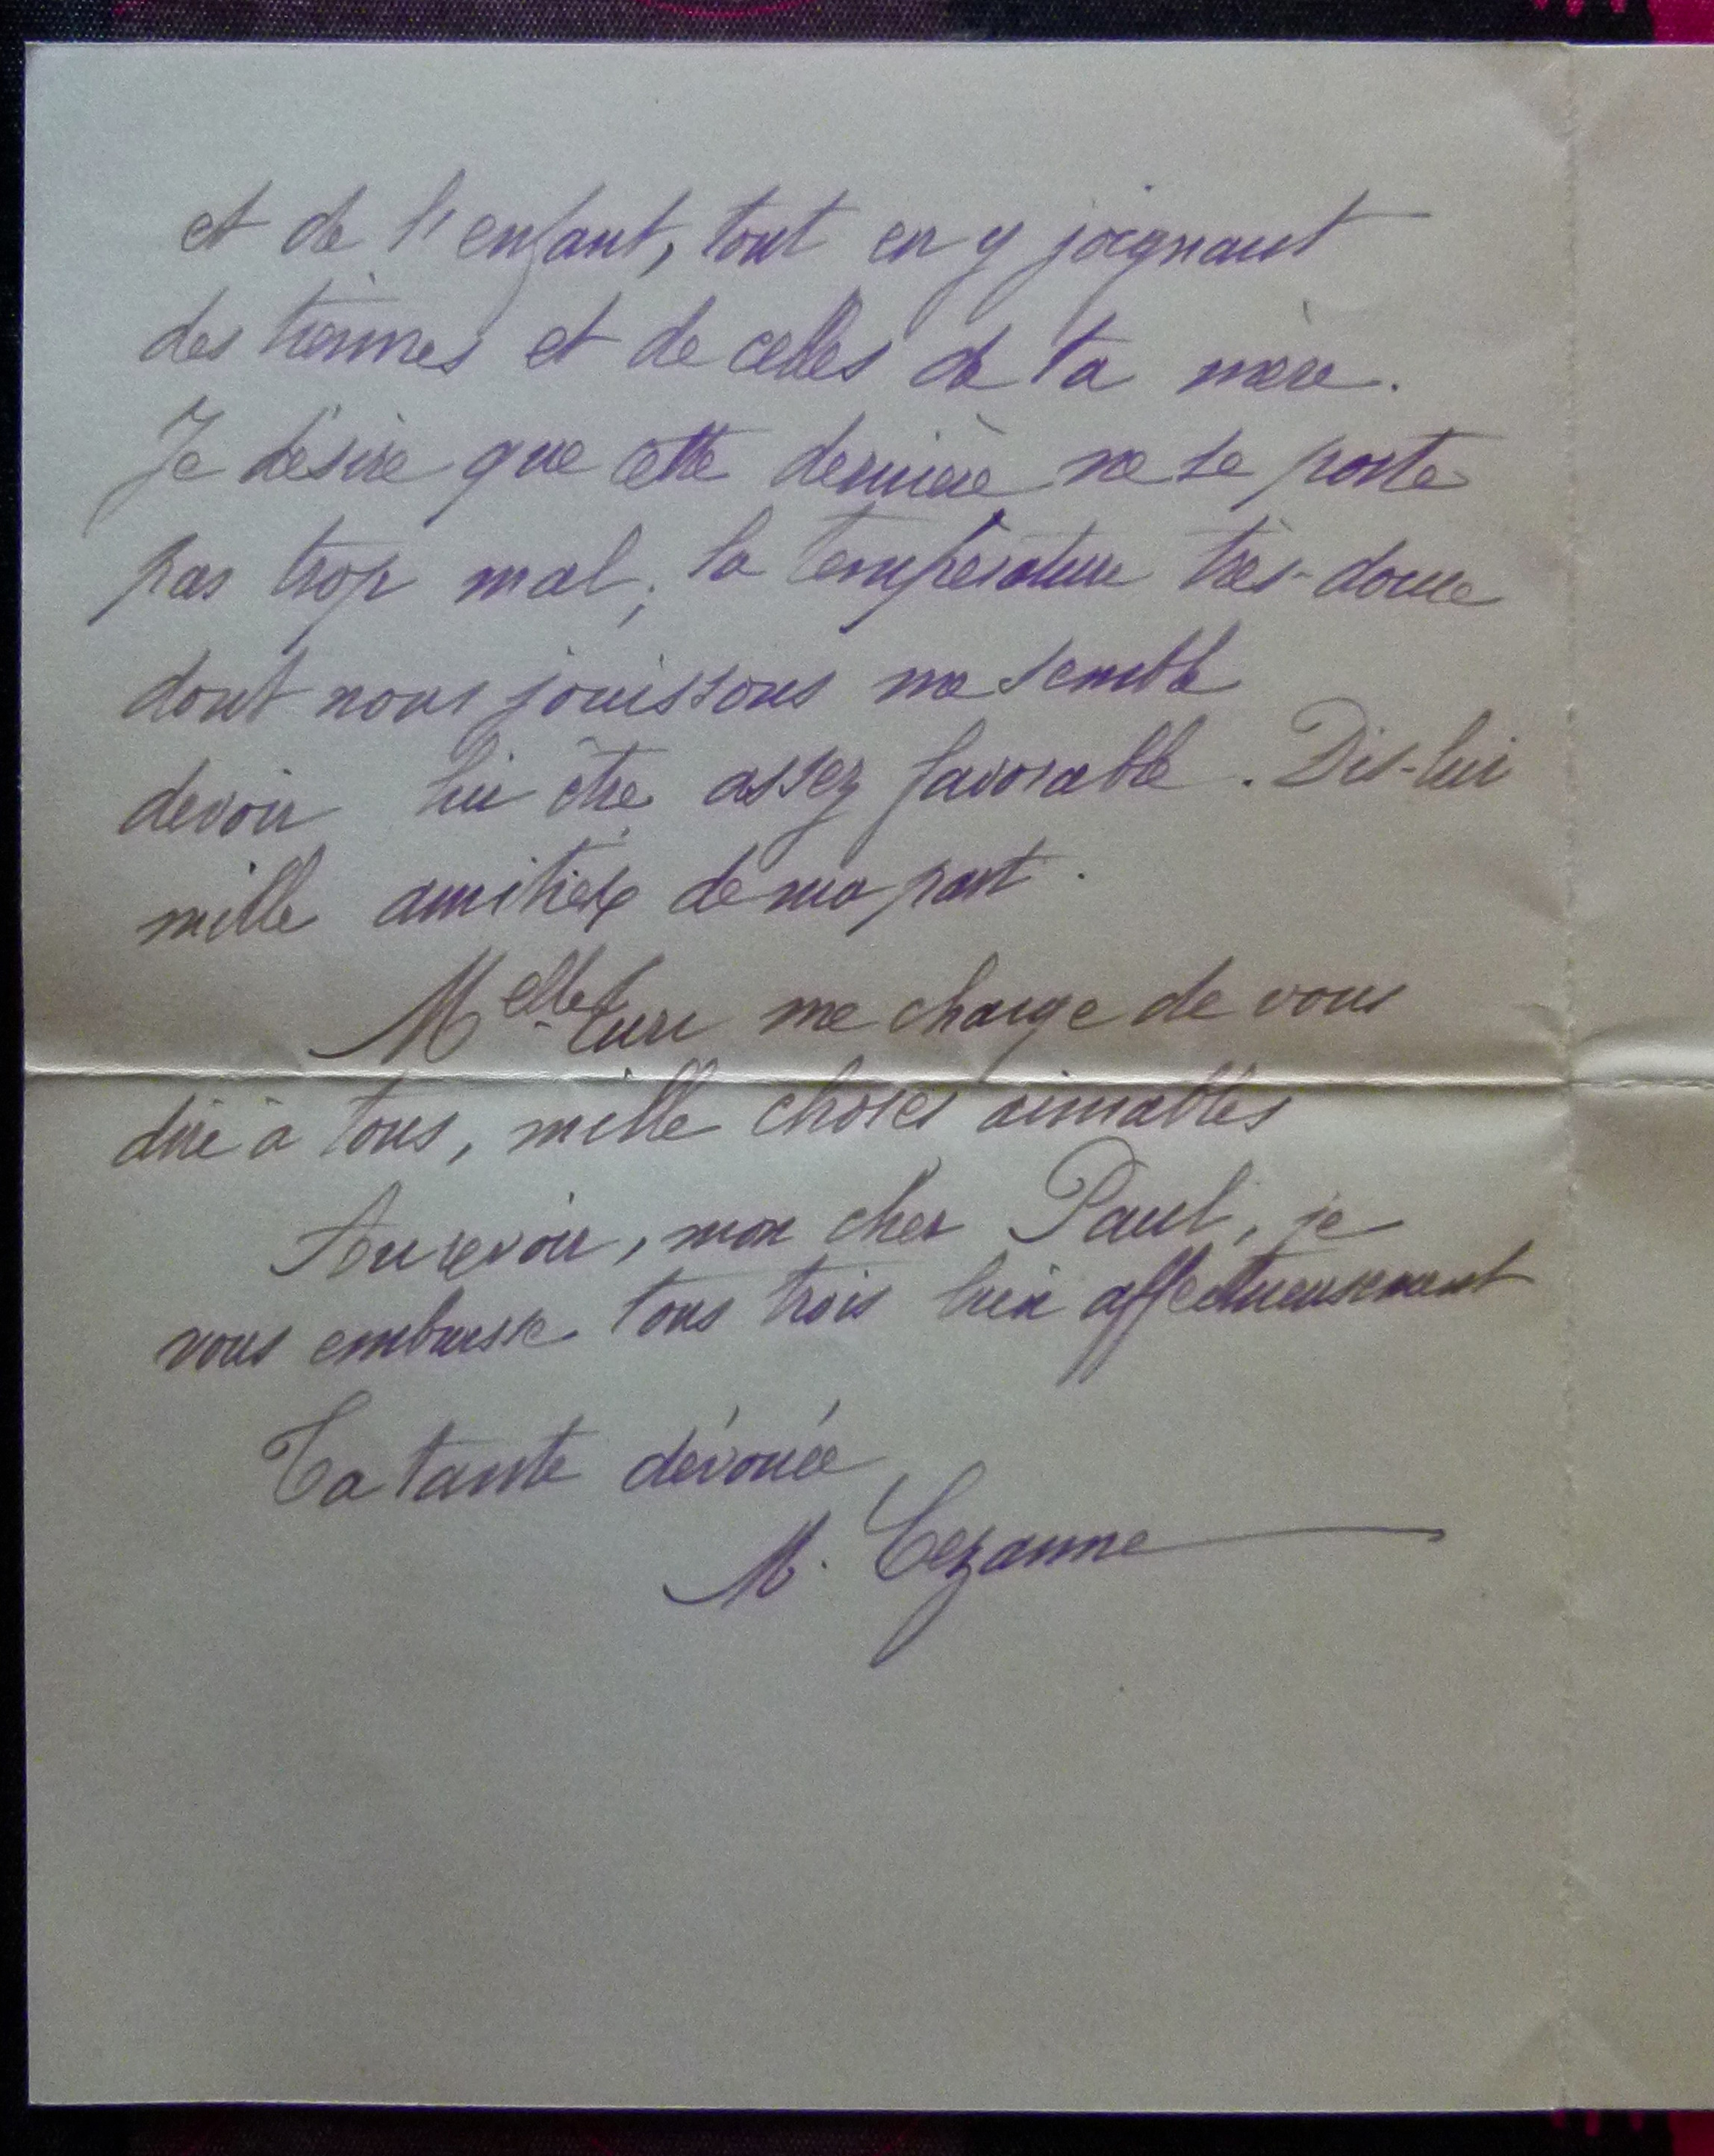 et de l'enfant, tout en y joignant
des tiennes et de celles de ta mère.
Je désire que cette dernière ne se porte
pas trop mal ; la température très-douce
dont nous jouissons me semble
devoir lui être assez favorable. Dis-lui
mille amitiés de ma part.
Melle me charge de vous
dire à tous, mille choses aimables
Au revoir, mon cher Paul, je
vous embrasse tous trois bien affectueusement
Ta tante dévouée
M. Cezanne